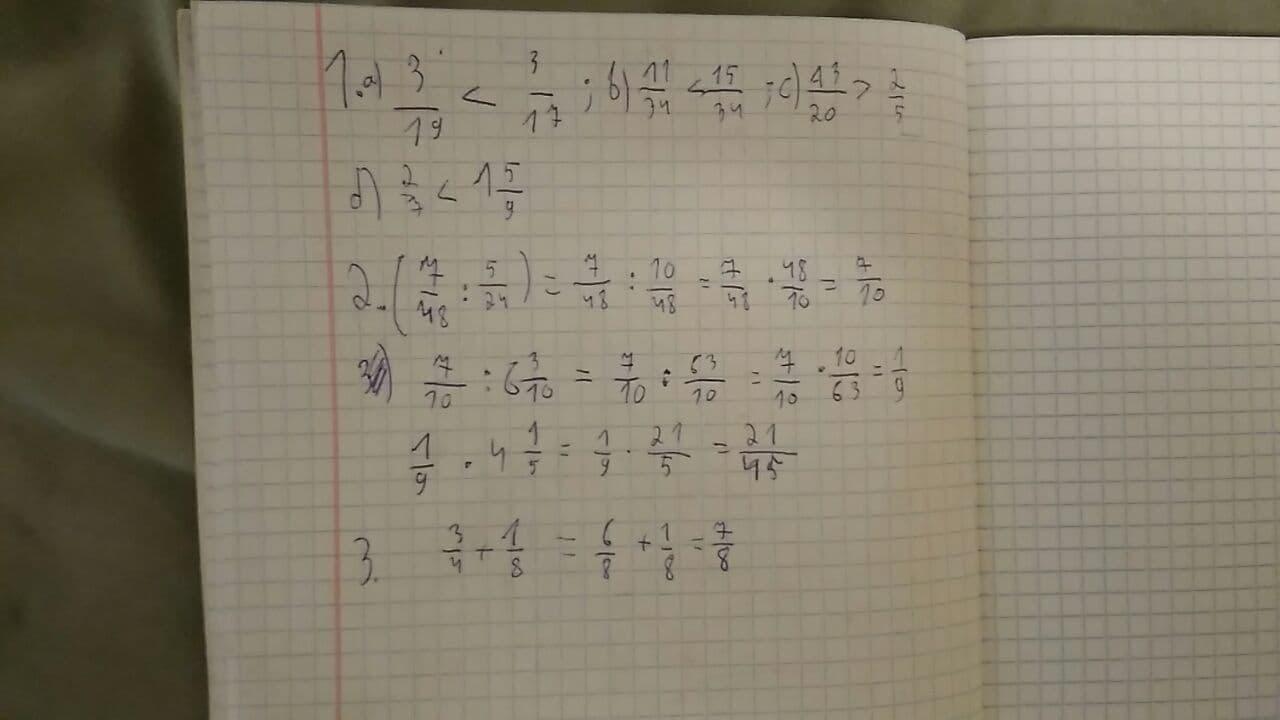 1.a) 3/19 < 3/17 ; b) 11/34 < 15/34 ; c) 43/20 > 2/5
б) 2/7 < 1 5/9
2. (7/48 : 5/24) = 7/48 : 10/48 = 7/48 · 48/10 = 7/10
7/10 : 6 3/10 = 7/10 : 63/10 = 7/10 · 10/63 = 1/9
1/9 · 4 1/5 = 1/9 · 21/5 = 21/45
3. 3/4 + 1/8 = 6/8 + 1/8 = 7/8